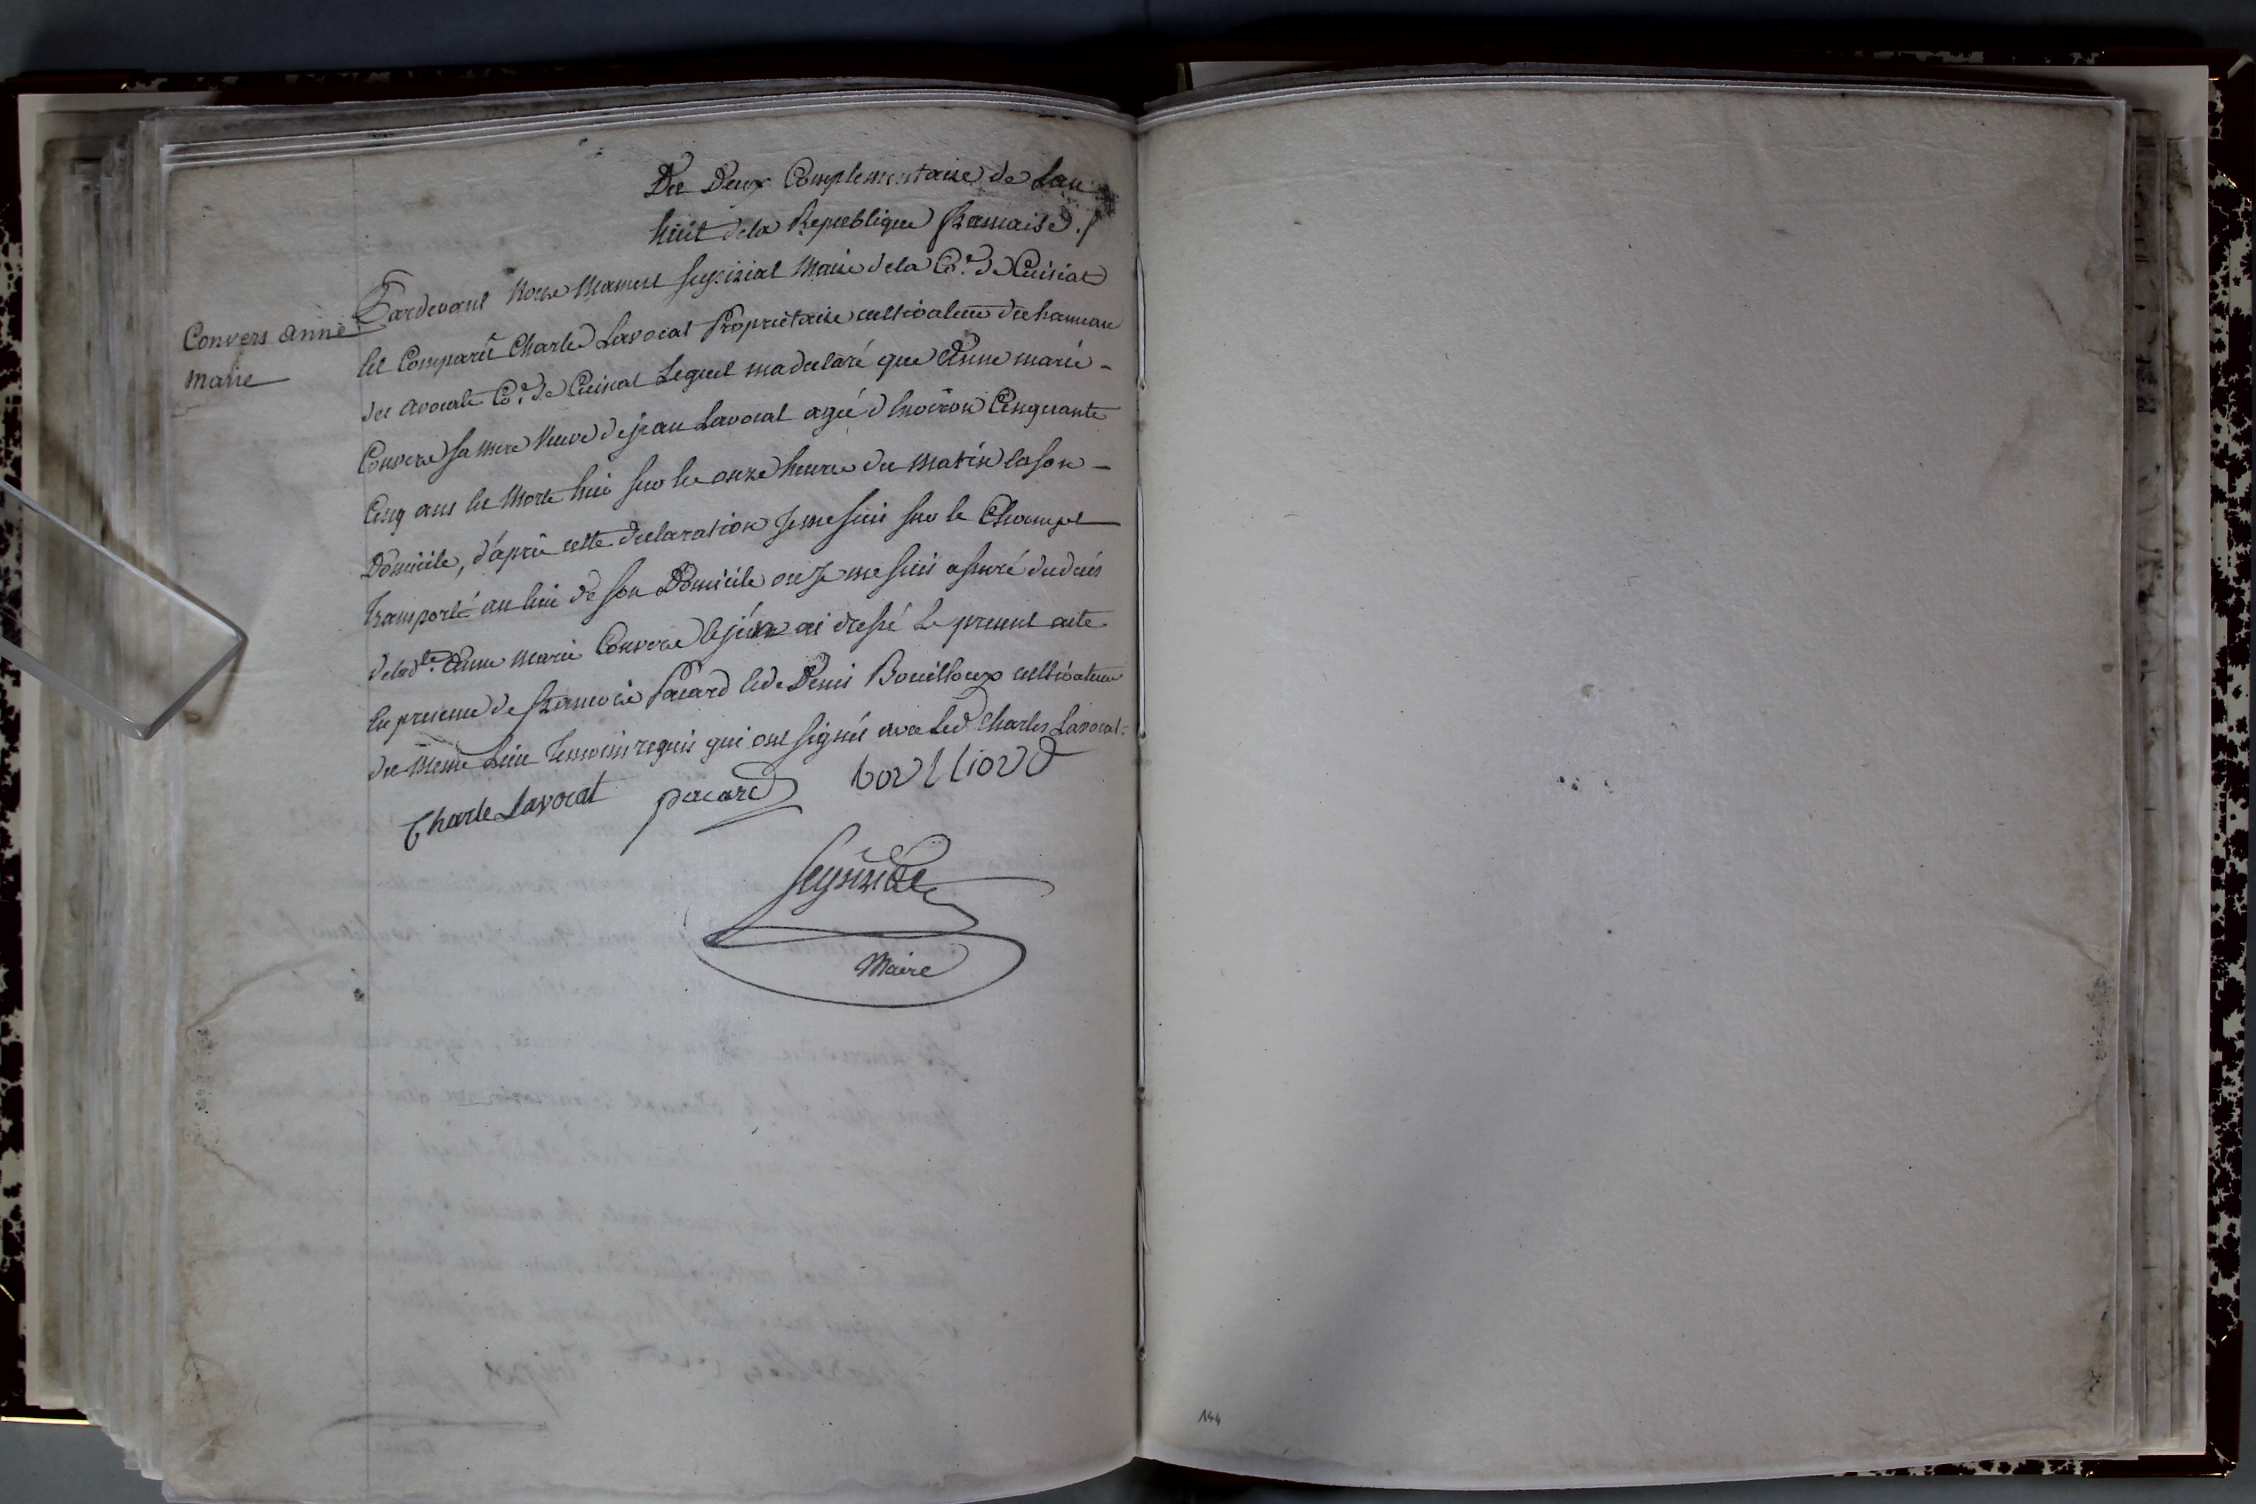 Du Deux Complementaire de Lan
huit dela Republique francaise ./
Convers anne
marie
Pardevant Nous Mamert Seyzeriat Maire dela Co.e de Cuisiat
est Comparû Charle Lavocat Propriétaire cultivateur du hameau
des avocats Co.e de Cuisiat Lequel ma declaré que Anne marie -
Convere sa mere Veuve de jean Lavocat ageé d'environ Cinquante
Cinq ans est Morte hier sur les onze heures du matin en son -
Domicile, d'aprês cette declaration Je me suis sur le Champt
Transporté au lieu de son Domicile ou Je me suis assuré du decés
de lad.te Anne Marie Convere et j'en ai dressé Le present acte
En presence de francois Pacard et de Denis Bouilloux cultivateur
du meme Lieu Temoins requis qui ont signés avec Led Charles Lavocat.
Charle Lavocat pacard
Maire
144